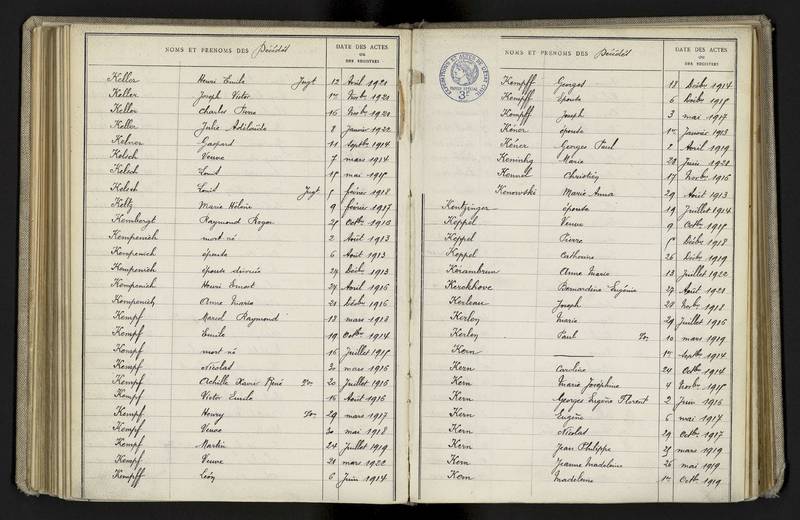 NOMS ET PRENOMS DES Décédés
DATE DES ACTES
OU
DES REGISTRES
Keller Henri Emile Jugt 12 Avril 1921
Keller Joseph Victor 1er Novbre 1921
Keller Charles Pierre 16 Novbre 1921
Keller Julie Adélaïde 8 Janvier 1922
Kelner Gaspard 11 Septbre 1914
Kelsch Veuve 7 mars 1914
Kelsch Louis mai
Kelsch Louis Jugt février 1918
Keltz Marie Hélène 9 février 1917
Kembergt Raymond Roger Octbre
Kempenich mort né 2 Août 1913
Kempenich épouse 6 Août 1913
Kempenich épouse divorcée 24 Décbre 1913
Kempenich Henri Ernest 24 Avril 1916
Kempenich Anne Marie 21 Octbre 1916
Kempf Marcel Raymond 12 mars 1913
Kempf Emile 19 Octbre 1914
Kempf mort né 16 Juillet 1915
Kempf Nicolas 20 mars 1916
Kempf Achille Xavier René Ton 20 Juillet 1916
Kempf Victor Emile 16 Août 1916
Kempf Henry Ton 29 mars 1917
Kempf Veuve 20 mai 1918
Kempf Martin 24 Juillet 1919
Kempf Veuve 21 mars 1920
Kempff Léon 6 Juin 1914
NOMS ET PRENOMS DES Décédés
DATE DES ACTES
OU
DES REGISTRES
EXPÉDITIONS ET ACTES DE L'ÉTAT CIVIL
PAPIER SPÉCIAL
3F
Kempff Georges 18 Décbre 1914
Kempff épouse 6 Décbre 1915
Kempff Joseph 3 mai 1917
Kéner épouse 1er Janvier 1913
Kéner Georges Paul 2 Avril 1919
Keninhg Marie 20 Juin 1921
Kennel Christian 17 Novbre 1916
Kenowski Marie Anna 29 Août 1913
Kentzinger épouse 19 Juillet 1914
Keppel Veuve 9 Octbre 1915
Keppel Pierre 5 Décbre 1918
Keppel Catherine 26 Décbre 1919
Kérambrun Anne Marie 13 Juillet 1922
Kerckhove Bernardine Eugénie 27 Août 1921
Kerleau Joseph 28 Novbre 1918
Kerloy Marie 29 Juillet 1916
Kerloy Paul Ton 10 mars 1919
Kern 1er Septbre 1914
Kern Caroline 24 Octbre 1914
Kern Marie Joséphine 4 Novbre 1915
Kern Georges Eugène Florent 2 Juin 1916
Kern Eugène 6 mai 1917
Kern Nicolas 29 Octbre 1917
Kern Jean Philippe 25 mars 1919
Kern Jeanne Madeleine 26 mai 1919
Kern Madeleine 1er Octbre 1919